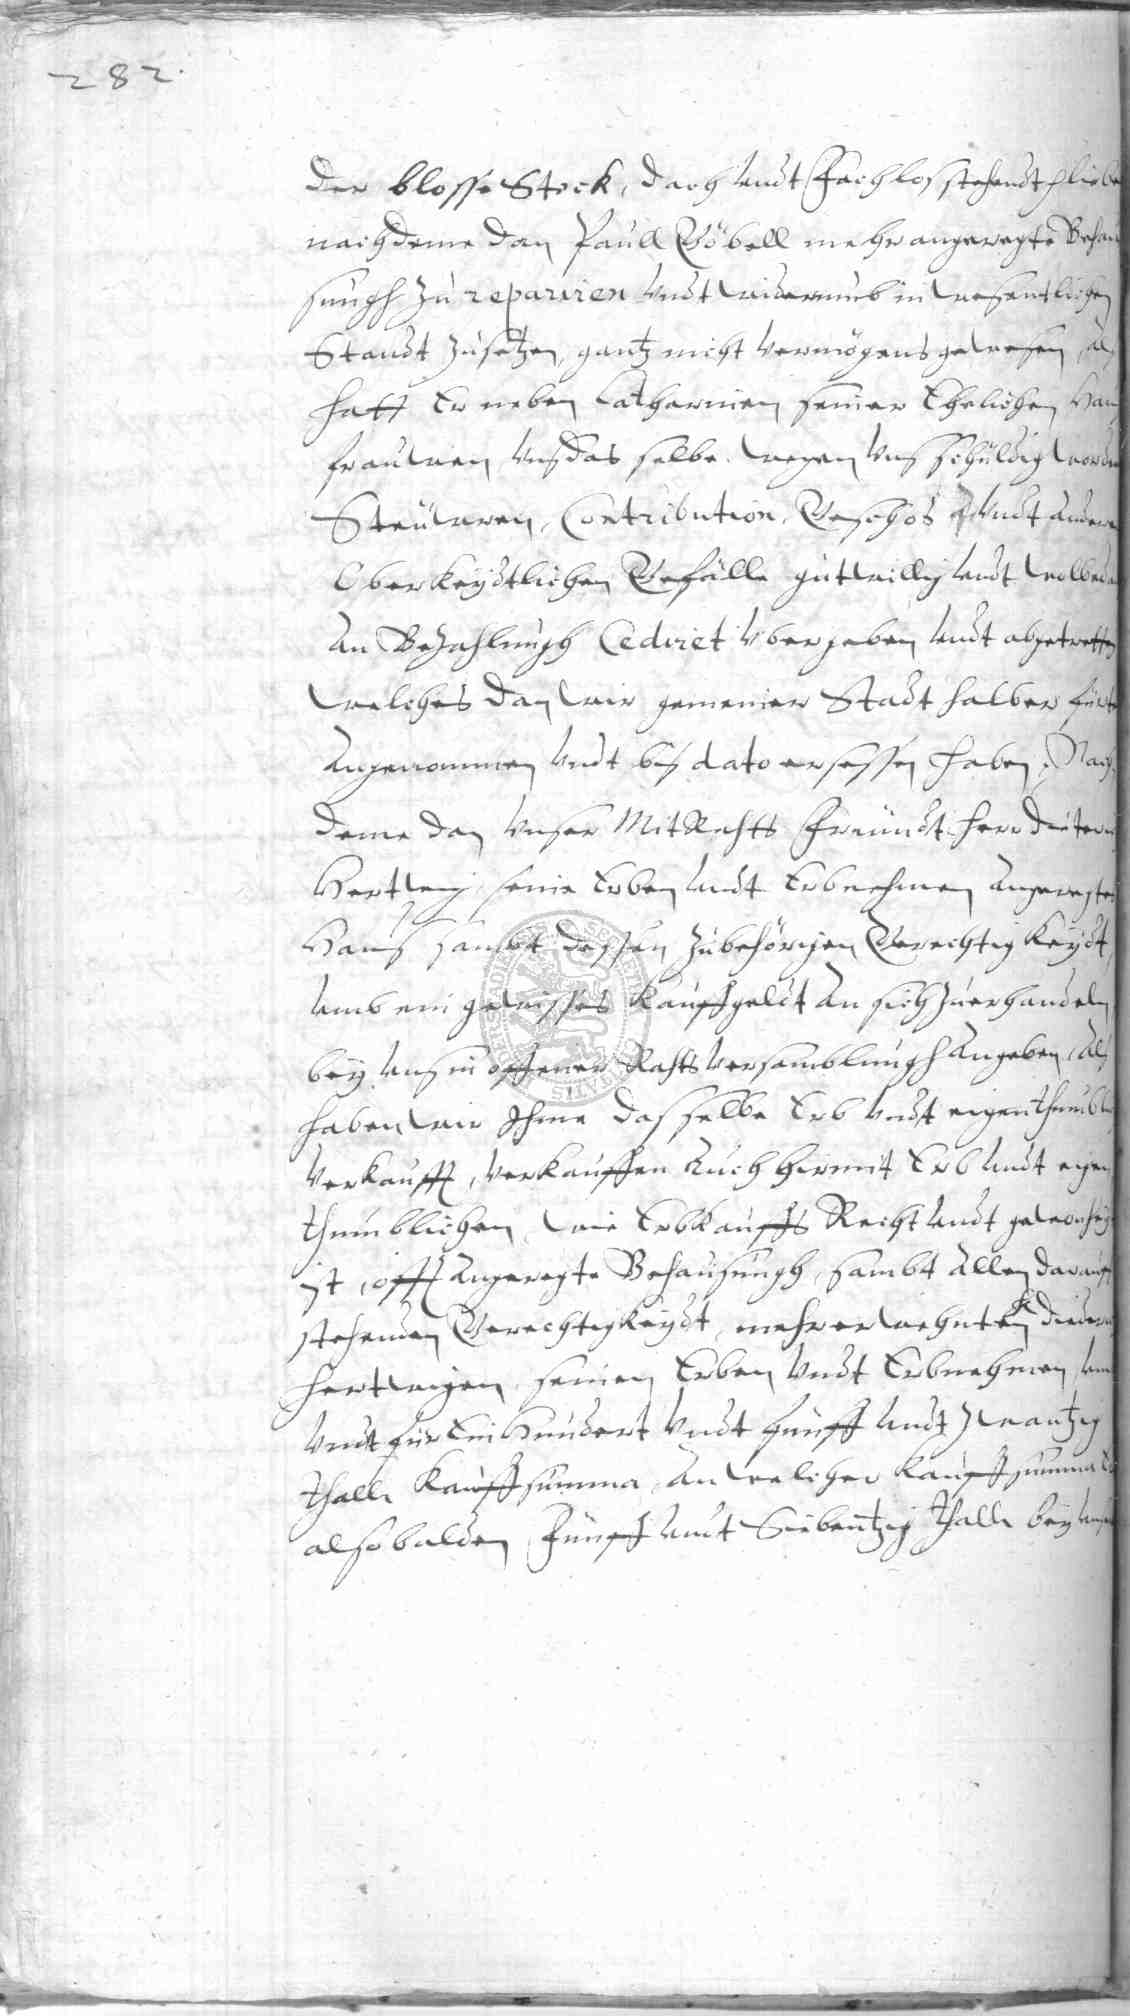 282.
der blosse Stock, dach undt fachlos stehendt pliebe
nachdeme dan Paull Göbell mehrangeregte Behau
sungh zu reparieren undt widerumb in wesentlichen
Standt zusetzen, gantz nicht vermögens gewesen, als
hatt Er neben Catharinen seiner Ehelichen Hau
frauwen, uns dasselbe wegen uns schuldig worde
Steuwren, Contribution, Geschos undt andere
Oberkeydtlichen Gefälle gutwillig undt wolbeda
An Bezahlungh Cediret ubergeben undt abgetretten
welches dan wir gemeiner Stadt halber
Angenommen undt bis dato ersessen haben, Nach
deme dan unser MitRahts Freundt Herr
Hertwig, seine Erben undt Erbnehmen Angeregtes
Haus sambt dessen zubehörigen Gerechtigkeydt,
umb ein gewisses Kauffgeldt An sich zuerhandeln
bey uns in offener Rahts versamblungh Angeben, Als
haben wir Ihme dasselbe Erb undt eigenthumbl
verkaufft, verkauffen Auch hirmit Erb undt eigen
thumblichen, wie Erbkauffs Recht undt gewonhey
ist, offt Angeregte Behausungh, sambt Allen darauff
stehenden Gerechtigkeydt, mehrerwehnten
Hertwigen, seinen Erben undt Erbnehmen, um
undt für Ein Hundert undt fünff undt zwantzig
thall. Kauffsumma, An welcher Kauffsumma
alsobalden Fünff undt Siebentzig thall. bey